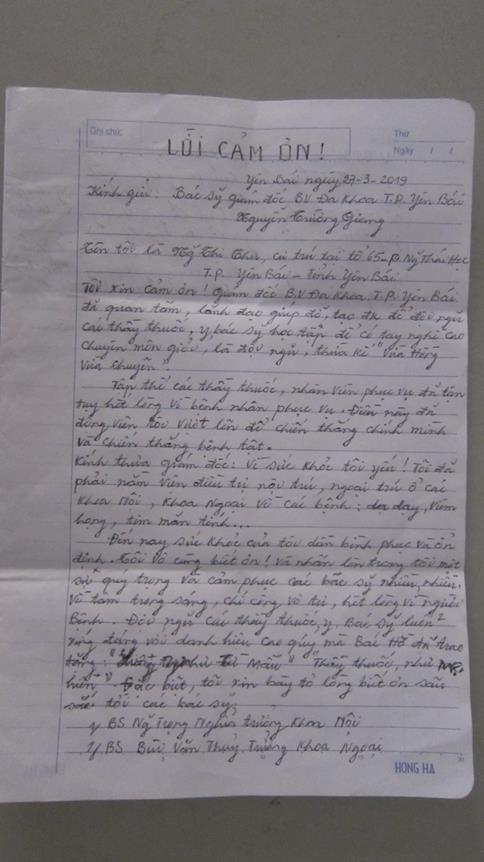 Ghi chức
Thứ
Ngày / /
LỜI CẢM ƠN!
Yên Bái ngày 27-3-2019
Kính gửi: Bác sỹ giám đốc BV Đa Khoa T.P. Yên Bái
Nguyễn Trường Giang
Tên tôi là Ng Thị Thu, cư trú tại tổ 65-p. Ng Thái Học
T.P. Yên Bái - Tỉnh Yên Bái
Tôi xin cảm ơn! Giám đốc B.V Đa Khoa T.P. Yên Bái
đã quan tâm, lãnh đạo giúp đỡ, tạo đk để đội ngũ
các thầy thuốc, y, bác sỹ học tập để có tay nghề cao
chuyên môn giỏi, là đội ngũ, thừa kế "Vừa Hồng
Vừa chuyên".
Tập thể các thầy thuốc, nhân viên phục vụ đã tận
tụy hết lòng vì bệnh nhân phục vụ. Điều này đã
động viên tôi vượt lên để chiến thắng chính mình
và chiến thắng bệnh tật.
Kính thưa giám đốc: Vì sức khỏe tôi yếu! Tôi đã
phải nằm viện điều trị nội trú, ngoại trú ở các
Khoa Nội, Khoa Ngoại về các bệnh: dạ dày, viêm
họng, tim mãn tính...
Đến nay sức khỏe của tôi dần bình phục và ổn
định. Tôi vô cùng biết ơn! Và nhân lên trong tôi một
sự quý trọng và cảm phục các bác sỹ nhiều, nhiều.
Vì tâm trong sáng, chí công vô tư, hết lòng vì người
Bệnh. Đội ngũ các thầy thuốc, y, Bác sỹ luôn2
xứng đáng với danh hiệu cao quý mà Bác Hồ đã trao
tặng: "Lương Y như Từ Mẫu" "Thầy thuốc, như mẹ
hiền". Đặc biệt, tôi xin bày tỏ lòng biết ơn sâu
sắc tới các bác sỹ:
1/ BS. Ng Trọng Nghĩa trưởng khoa Nội
2/ BS. Bùi Văn Thuỷ Trưởng Khoa Ngoại
HONG HA